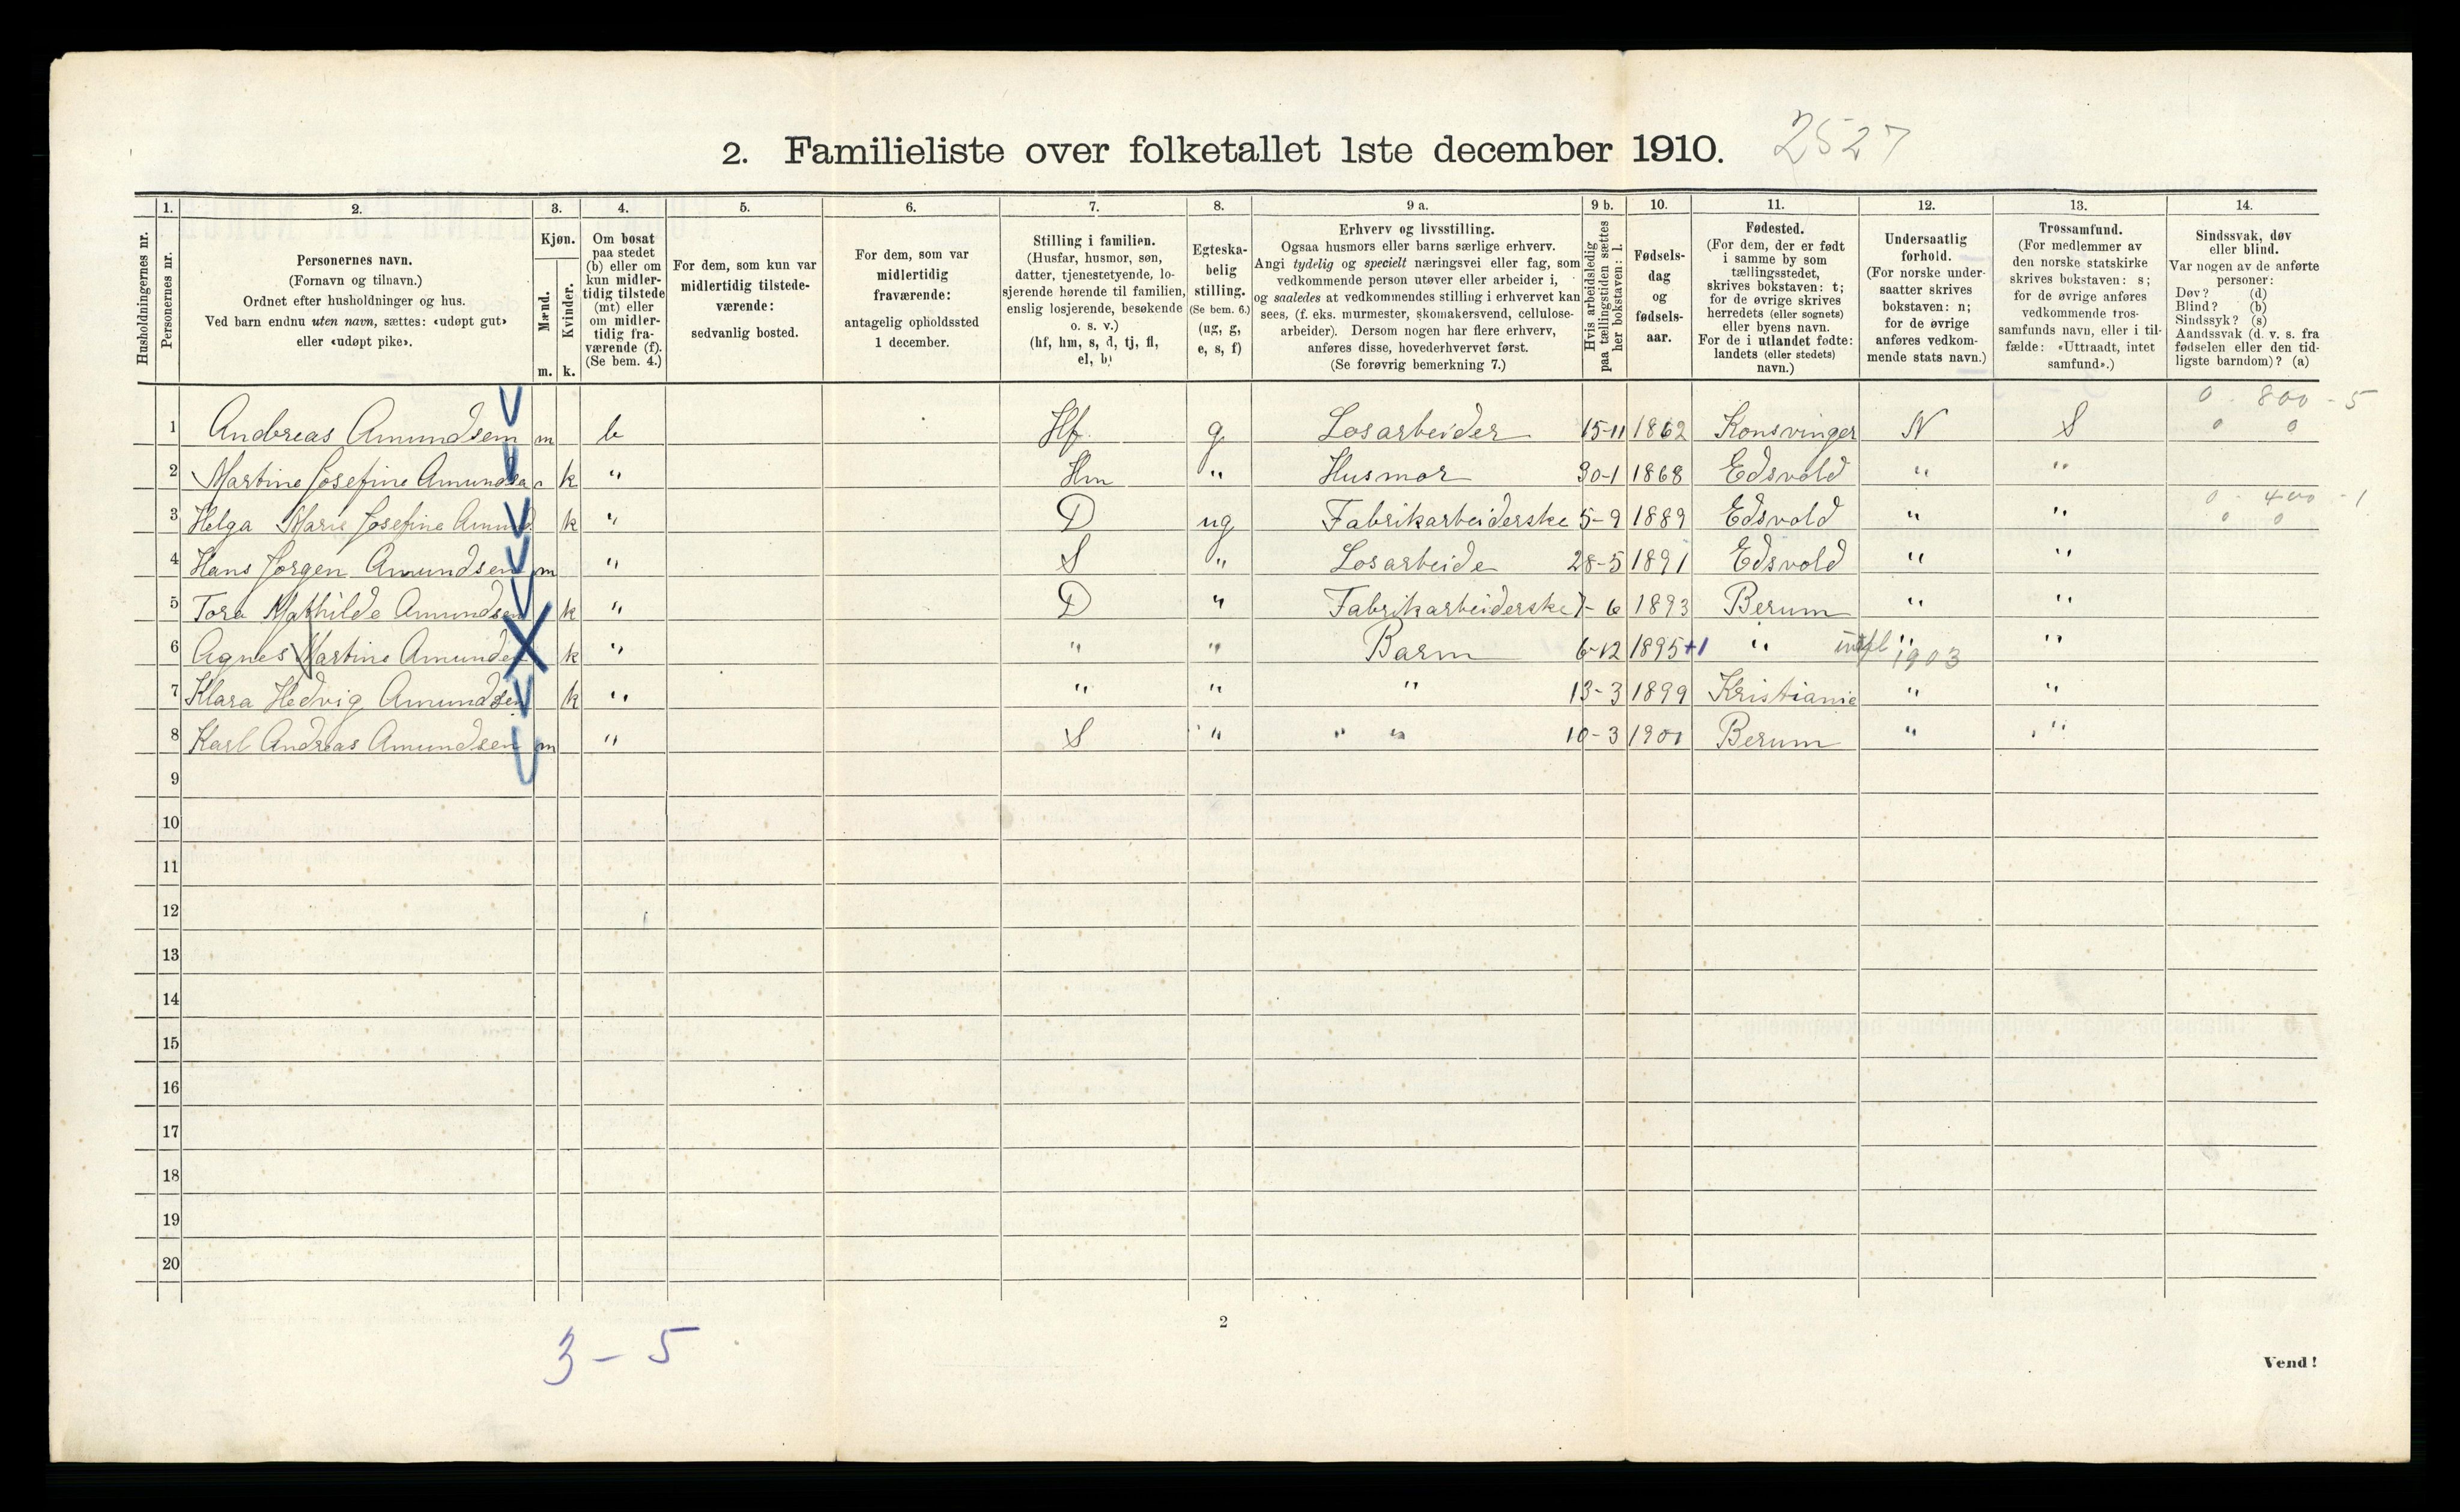 2. Familieliste over folketallet 1ste december 1910. 2527
Husholdningernes nr.
1. Personernes nr.
2. Personernes navn. (Fornavn og tilnavn.) Ordnet efter husholdninger og hus. Ved barn endnu uten navn, sættes: «udøpt gut» eller «udøpt pike».
3. Kjøn. Mænd. m. Kvinder. k.
4. Om bosat paa stedet (b) eller om kun midlertidig tilstede (mt) eller om midlertidig fraværende (f). (Se bem. 4.)
5. For dem, som kun var midlertidig tilstedeværende: sedvanlig bosted.
6. For dem, som var midlertidig fraværende: antagelig opholdssted 1 december.
7. Stilling i familien. (Husfar, husmor, søn, datter, tjenestetyende, losjerende hørende til familien, enslig losjerende, besøkende o. s. v.) (hf, hm, s, d, tj, fl, el, b)
8. Egteskabelig stilling. (Se bem. 6.) (ug, g, e, s, f)
9 a. Erhverv og livsstilling. Ogsaa husmors eller barns særlige erhverv. Angi tydelig og specielt næringsvei eller fag, som vedkommende person utøver eller arbeider i, og saaledes at vedkommendes stilling i erhvervet kan sees, (f. eks. murmester, skomakersvend, cellulosearbeider). Dersom nogen har flere erhverv, anføres disse, hovederhvervet først. (Se forøvrig bemerkning 7.)
9 b. Hvis arbeidsledig paa tællingstiden sættes her bokstaven: l.
10. Fødselsdag og fødselsaar.
11. Fødested. (For dem, der er født i samme by som tællingsstedet, skrives bokstaven: t; for de øvrige skrives herredets (eller sognets) eller byens navn. For de i utlandet fødte: landets (eller stedets) navn.)
12. Undersaatlig forhold. (For norske undersaatter skrives bokstaven: n; for de øvrige anføres vedkommende stats navn.)
13. Trossamfund. (For medlemmer av den norske statskirke skrives bokstaven: s; for de øvrige anføres vedkommende trossamfunds navn, eller i tilfælde: «Uttraadt, intet samfund».)
14. Sindssvak, døv eller blind. Var nogen av de anførte personer: Døv? (d) Blind? (b) Sindssyk? (s) Aandssvak (d. v. s. fra fødselen eller den tidligste barndom)? (a)
0 - 800 - 5
1 Andreas Amundsen m b Hf g Losarbeider 15-11 1862 Konsvinger N S 0 0
2 Martine Josefine Amundsen k " Hm " Husmor 30-1 1868 Edsvold " "
0 - 400 - 1
3 Helga Marie Josefine Amund k " D ug Fabrikarbeiderske 5-9 1889 Edsvold " " 0 0
4 Hans Jørgen Amundsen m " S " Losarbeide 28-5 1891 Edsvold " "
5 Tora Mathilde Amundsen k " D " Fabrikarbeiderske 7-6 1893 Berum " "
6 Agnes Martine Amundsen k " " " Barn 6-12 1895 +1 " indfl 1903 " "
7 Klara Hedvig Amundsen k " " " " 13-3 1899 Kristiania " "
8 Karl Andreas Amundsen m " S " " " 10-3 1901 Berum " "
9
10
11
12
13
14
15
16
17
18
19
20
2
3 - 5
Vend!